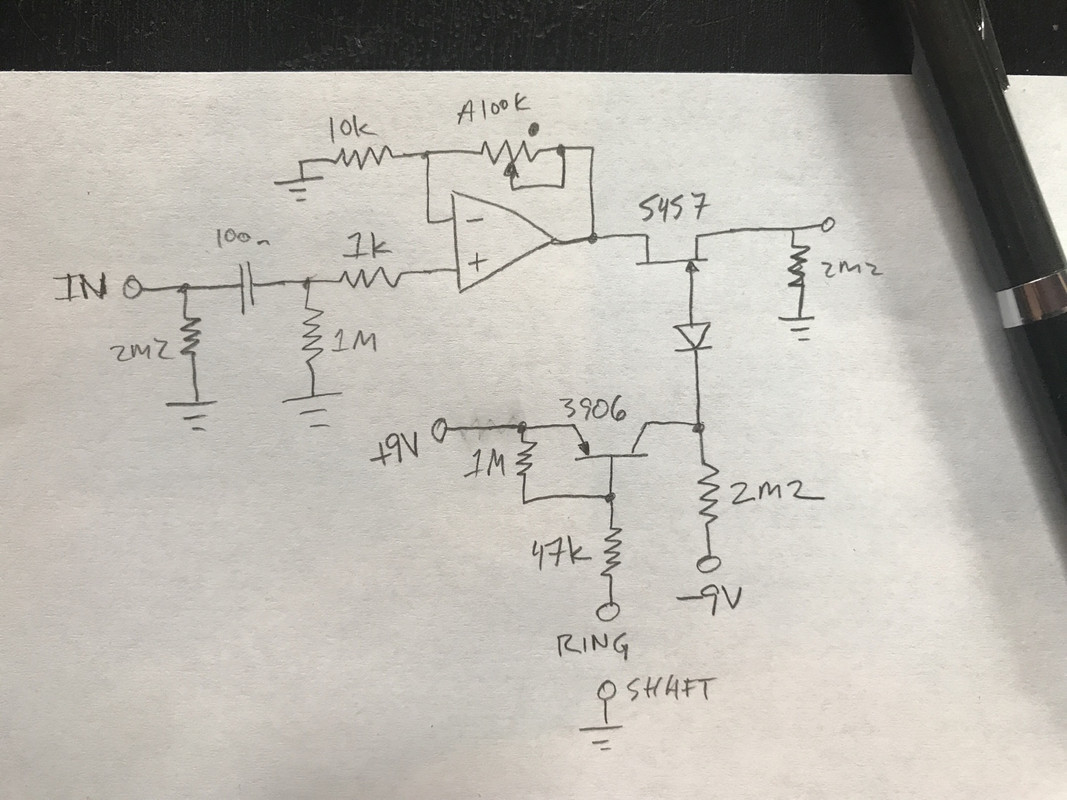 10k
A100k
-
+
100n
1k
IN
2M2
1M
5457
2M2
3906
+9V
1M
2M2
47k
-9V
RING
SHAFT